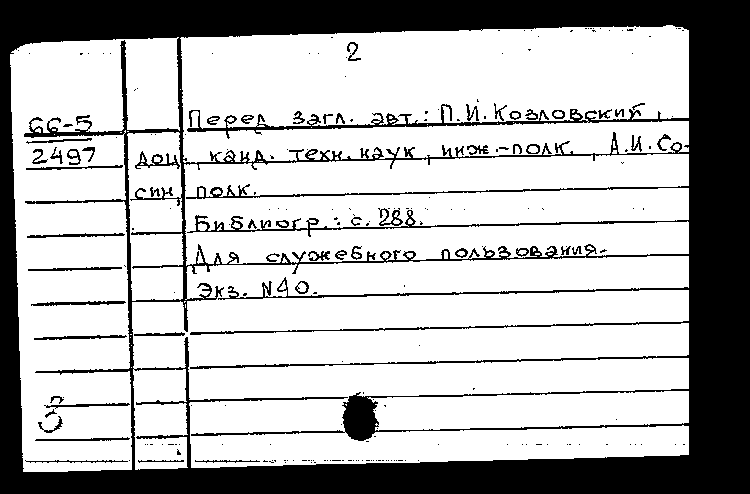 2
66-5
2497
Перед загл. авт.: П.И. Козловский,
доц., канд. техн. наук, инж.-полк., А.И. Со-
син, полк.
Библиогр.: с. 288.
Для служебного пользования.
Экз. N40.
3